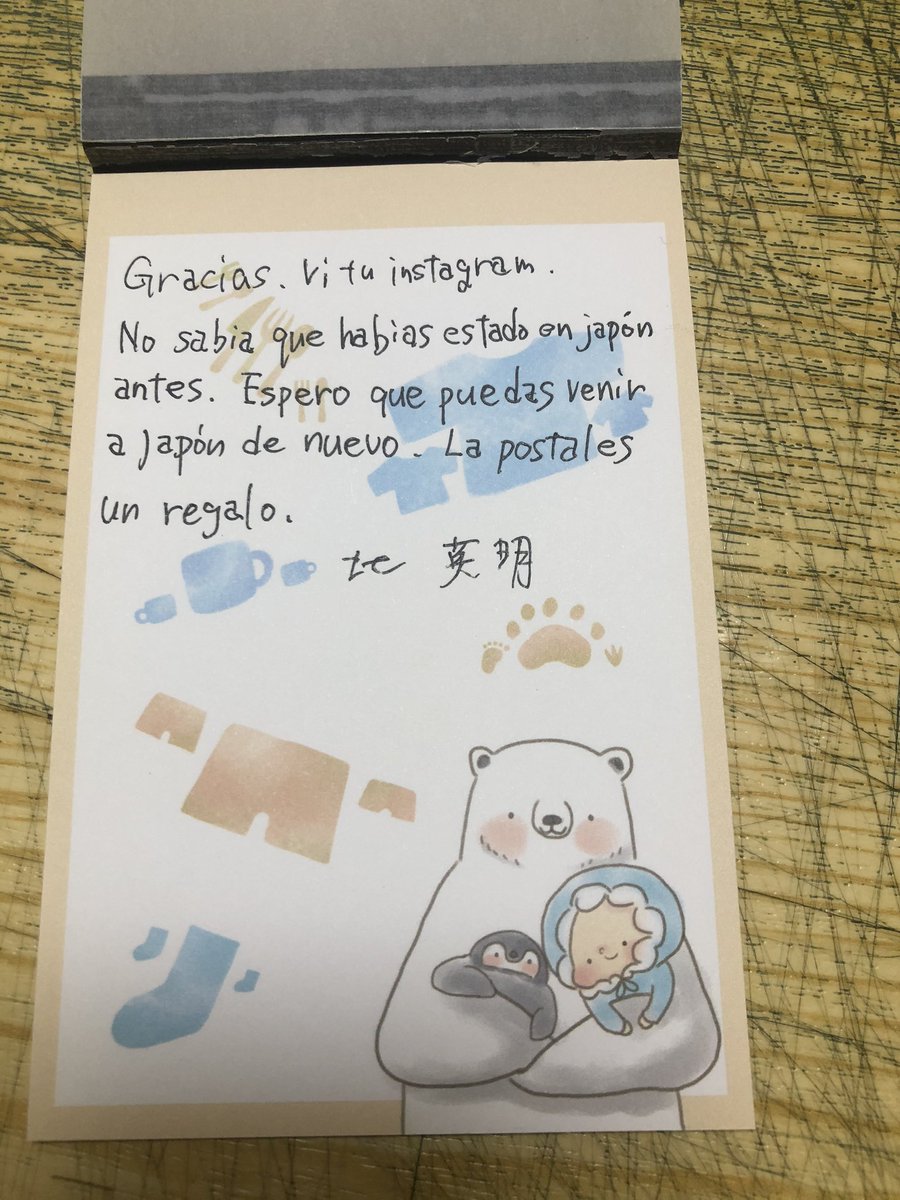 Gracias. Vi tu instagram.
No sabia que habias estado en japón
antes. Espero que puedas venir
a Japón de nuevo. La postales
un regalo.
英明